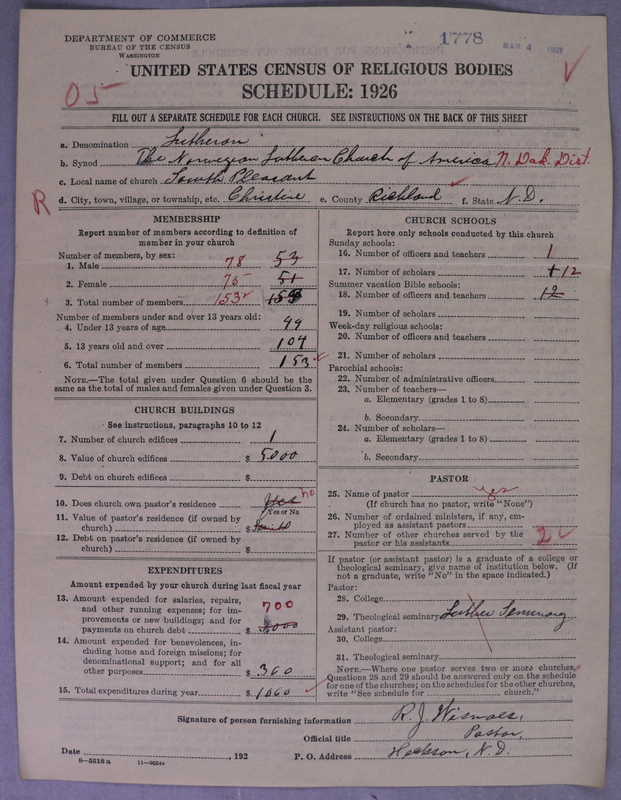 DEPARTMENT OF COMMERCE
BUREAU OF THE CENSUS
WASHINGTON
1778
MAR 4
05
UNITED STATES CENSUS OF RELIGIOUS BODIES
SCHEDULE: 1926
FILL OUT A SEPARATE SCHEDULE FOR EACH CHURCH. SEE INSTRUCTIONS ON THE BACK OF THIS SHEET
a. Denomination Lutheran
b. Synod The Norwegian Lutheran Church of America N. Dak. Dist.
c. Local name of church South Pleasant
R d. City, town, village, or township, etc. Christine e. County Richland f. State N.D.
MEMBERSHIP
Report number of members according to definition of
member in your church
Number of members, by sex:
1. Male 78 53
2. Female 75 51
3. Total number of members 153
Number of members under and over 13 years old:
4. Under 13 years of age 49
5. 13 years old and over 104
6. Total number of members 153
NOTE.—The total given under Question 6 should be the
same as the total of males and females given under Question 3.
CHURCH BUILDINGS
See instructions, paragraphs 10 to 12
7. Number of church edifices 1
8. Value of church edifices $ 5000
9. Debt on church edifices $
10. Does church own pastor's residence Yes no
Yes or No
11. Value of pastor's residence (if owned by
church) $
12. Debt on pastor's residence (if owned by
church) $
EXPENDITURES
Amount expended by your church during last fiscal year
13. Amount expended for salaries, repairs,
and other running expenses; for im-
provements or new buildings; and for
payments on church debt 700 $
14. Amount expended for benevolences, in-
cluding home and foreign missions; for
denominational support; and for all
other purposes $ 360
15. Total expenditures during year $ 1060
CHURCH SCHOOLS
Report here only schools conducted by this church
Sunday schools:
16. Number of officers and teachers 1
17. Number of scholars 12
Summer vacation Bible schools:
18. Number of officers and teachers 12
19. Number of scholars
Week-day religious schools:
20. Number of officers and teachers
21. Number of scholars
Parochial schools:
22. Number of administrative officers
23. Number of teachers—
a. Elementary (grades 1 to 8)
b. Secondary
24. Number of scholars—
a. Elementary (grades 1 to 8)
b. Secondary
PASTOR
25. Name of pastor yes
(If church has no pastor, write "None")
26. Number of ordained ministers, if any, em-
ployed as assistant pastors
27. Number of other churches served by the
pastor or his assistants 2
If pastor (or assistant pastor) is a graduate of a college or
theological seminary, give name of institution below. (If
not a graduate, write "No" in the space indicated.)
Pastor:
28. College
29. Theological seminary Luther Seminary
Assistant pastor:
30. College
31. Theological seminary
NOTE.—Where one pastor serves two or more churches,
Questions 28 and 29 should be answered only on the schedule
for one of the churches; on the schedules for the other churches,
write "See schedule for church."
Signature of person furnishing information R. J.
Official title Pastor,
Date , 192 P. O. Address N. D.
8—5518 a